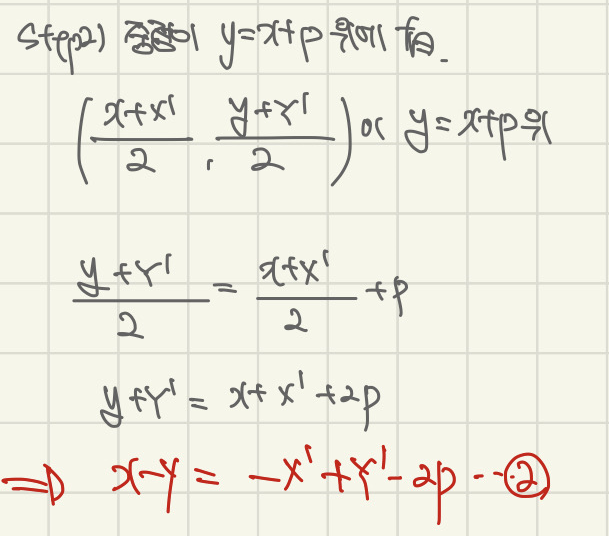 Step2) 중점이 y=x+p 위의 점.
(x+x'/2, y+y'/2) ∈ y=x+p 위
y+y'/2 = x+x'/2 + p
y+y' = x+x'+2p
⇒ x-y = -x'+y'-2p --②